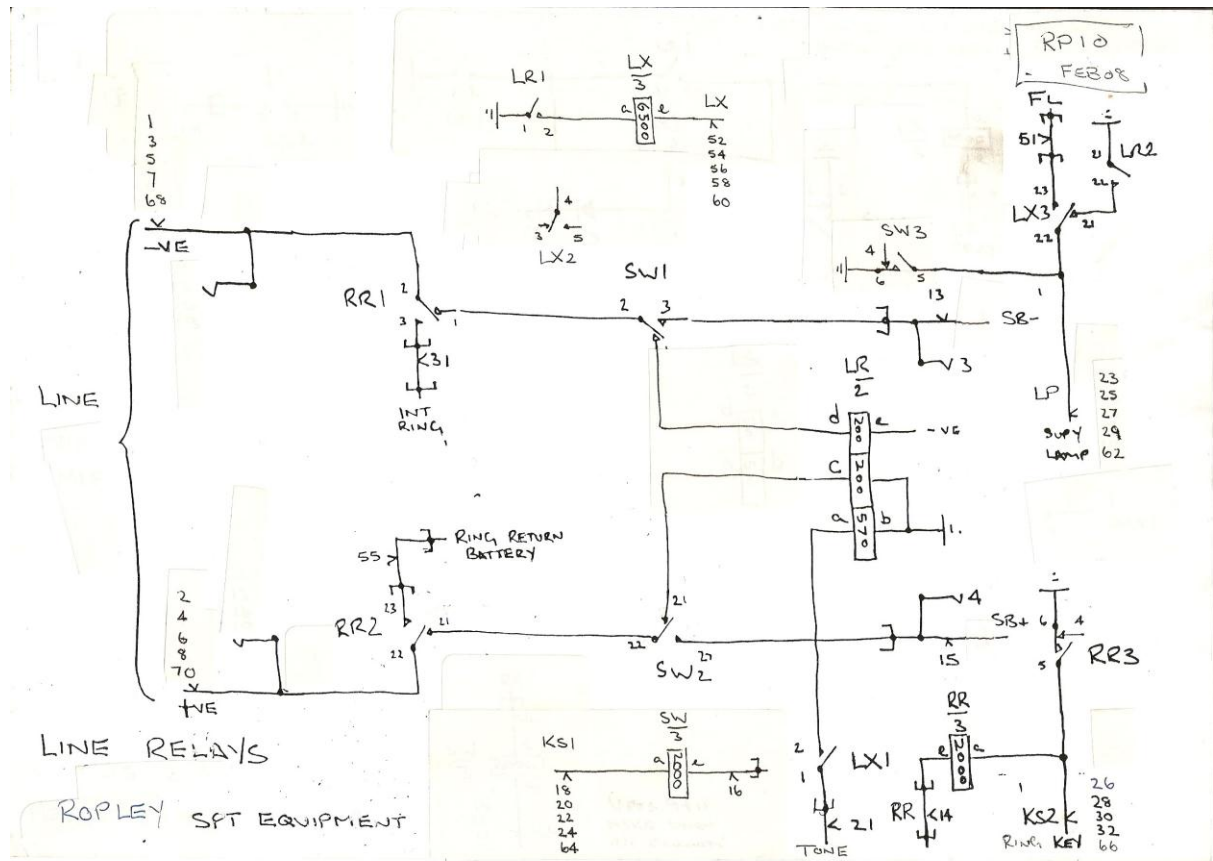 RP10
FEB08
LR1
1 2
LX
3
a 6500 e
LX
52
54
56
58
60
FL
51
23
LX3
22
21
21
LR2
22
1
3
5
7
68
-VE
4
3 5
LX2
SW3
4
6 5
RR1
2
3
1
31
INT
RING
SW1
2 3
1
13
SB-
3
LINE
LR
2
d 200 e -VE
c 200
a 570 b
LP
SUPY
LAMP
23
25
27
29
62
RING RETURN
BATTERY
55
23
RR2
21
22
2
4
6
8
70
+VE
21
22
27
SW2
4
SB+
15
6 4
5
RR3
LINE RELAYS
ROPLEY SFT EQUIPMENT
KS1
18
20
22
24
64
SW
3
a 2000 e
16
2
1
LX1
21
TONE
RR
3
e 2000 a
RR
14
KS2
RING KEY
26
28
30
32
66